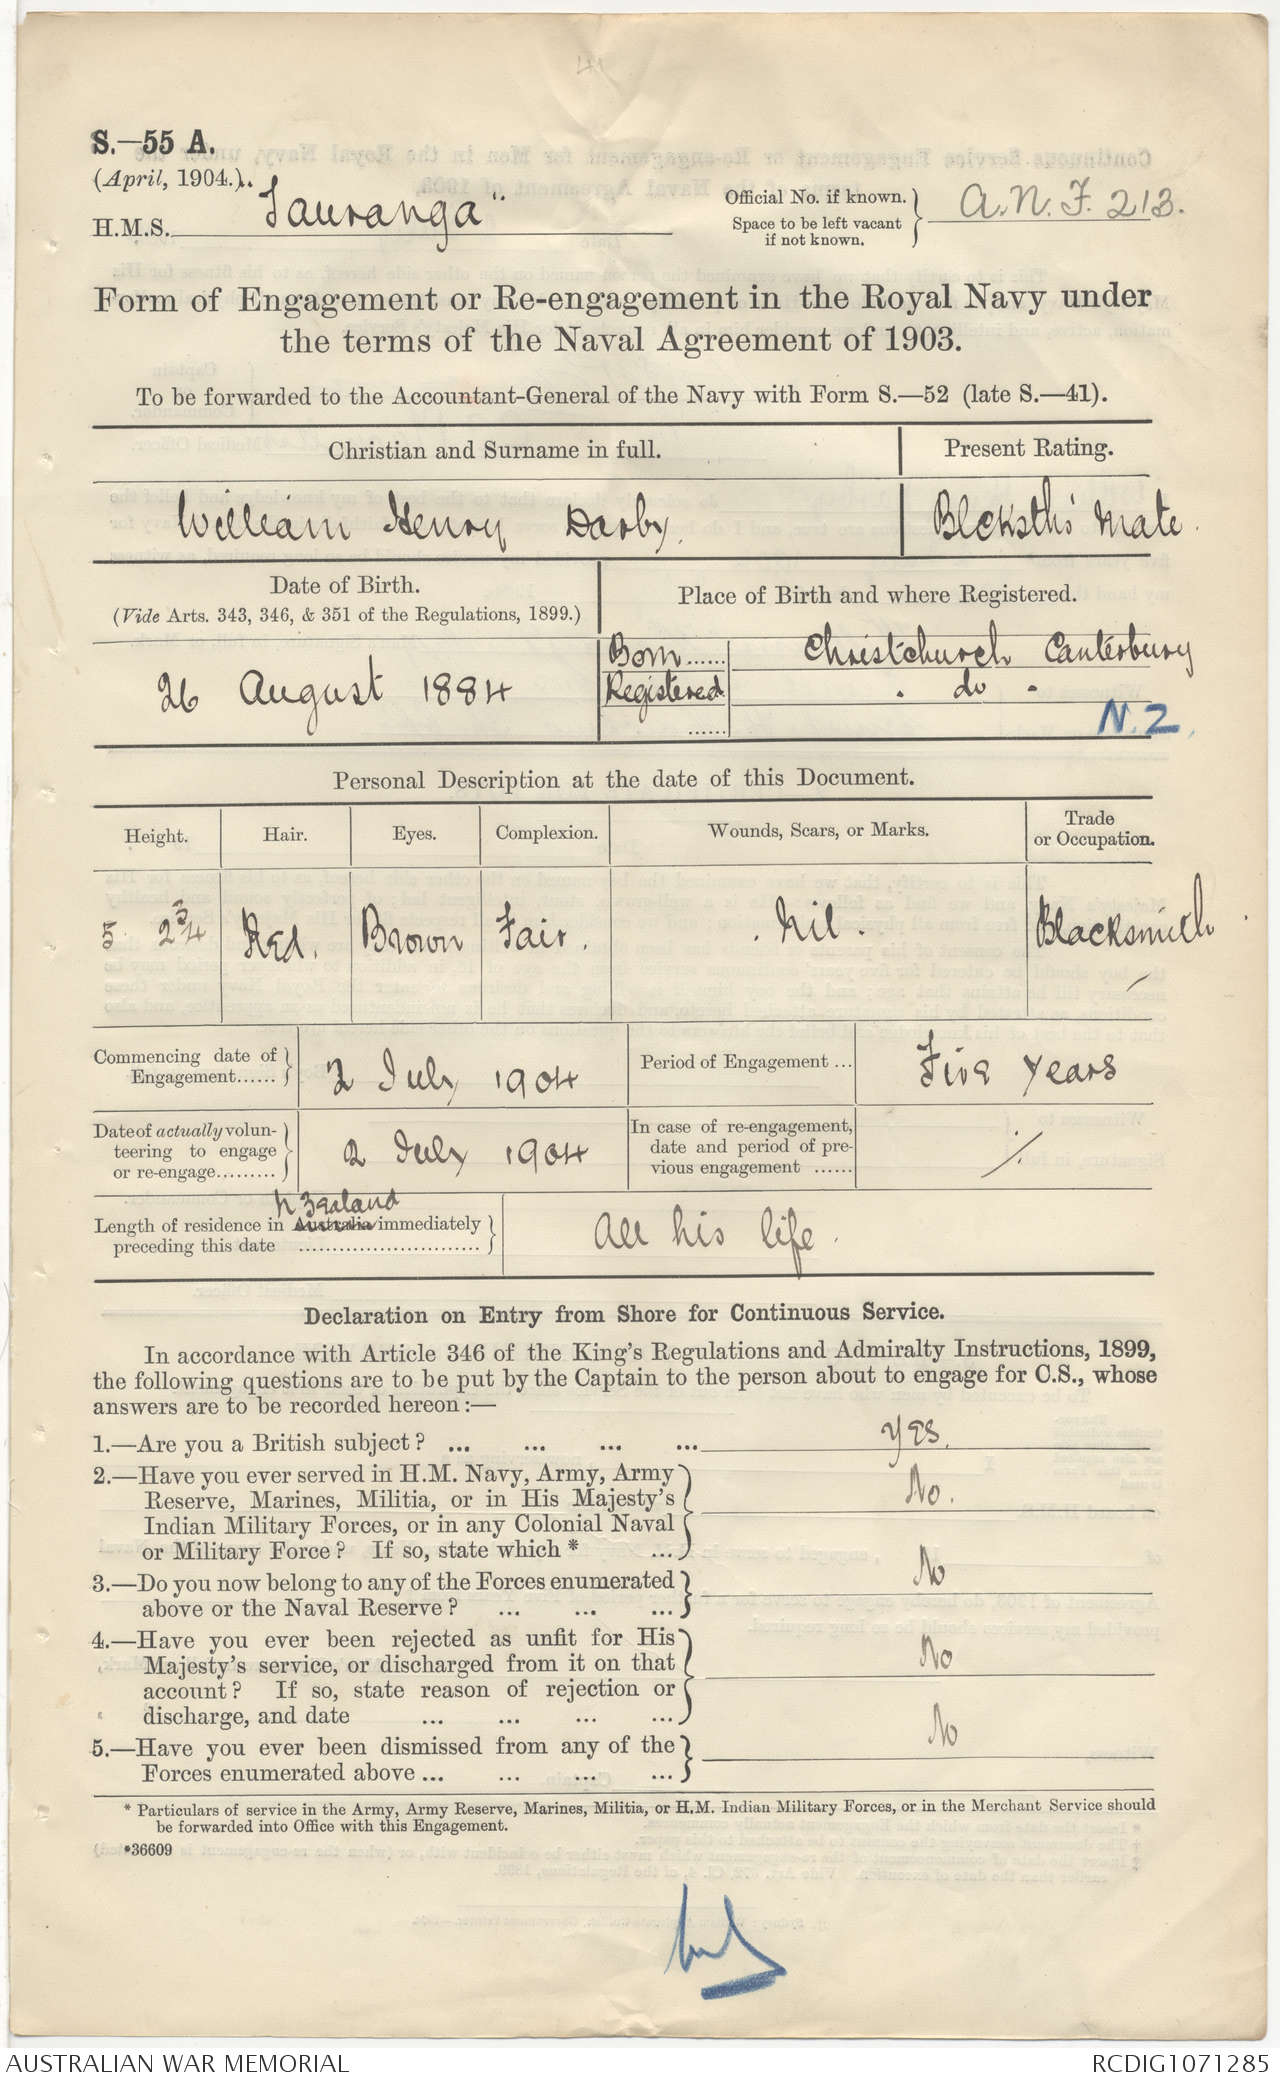 S.—55 A.
(April, 1904.)
H.M.S. "Tauranga"
Official No. if known.
Space to be left vacant
if not known.
A.N.F. 213.
Form of Engagement or Re-engagement in the Royal Navy under
the terms of the Naval Agreement of 1903.
To be forwarded to the Accountant-General of the Navy with Form S.—52 (late S.—41).
Christian and Surname in full.
Present Rating.
William Henry Darby.
Blcksth's Mate.
Date of Birth.
(Vide Arts. 343, 346, & 351 of the Regulations, 1899.)
Place of Birth and where Registered.
26 August 1884
Born...... Christchurch Canterbury
Registered . do .
...... N.Z.
Personal Description at the date of this Document.
Height.
Hair.
Eyes.
Complexion.
Wounds, Scars, or Marks.
Trade
or Occupation.
5 2 3/4
Red.
Brown
Fair.
. Nil .
Blacksmith
Commencing date of
Engagement......
2 July 1904
Period of Engagement ...
Five Years
Date of actually volun-
teering to engage
or re-engage.........
2 July 1904
In case of re-engagement,
date and period of pre-
vious engagement ......
N Zealand
Length of residence in Australia immediately
preceding this date ............................
All his life.
Declaration on Entry from Shore for Continuous Service.
In accordance with Article 346 of the King's Regulations and Admiralty Instructions, 1899,
the following questions are to be put by the Captain to the person about to engage for C.S., whose
answers are to be recorded hereon:—
1.—Are you a British subject? ... ... ... ... Yes.
2.—Have you ever served in H.M. Navy, Army, Army
Reserve, Marines, Militia, or in His Majesty's
Indian Military Forces, or in any Colonial Naval
or Military Force? If so, state which * ...
No.
3.—Do you now belong to any of the Forces enumerated
above or the Naval Reserve? ... ... ...
No
4.—Have you ever been rejected as unfit for His
Majesty's service, or discharged from it on that
account? If so, state reason of rejection or
discharge, and date ... ... ... ...
No
5.—Have you ever been dismissed from any of the
Forces enumerated above ... ... ... ...
No
* Particulars of service in the Army, Army Reserve, Marines, Militia, or H.M. Indian Military Forces, or in the Merchant Service should
be forwarded into Office with this Engagement.
*36609
AUSTRALIAN WAR MEMORIAL
RCDIG1071285